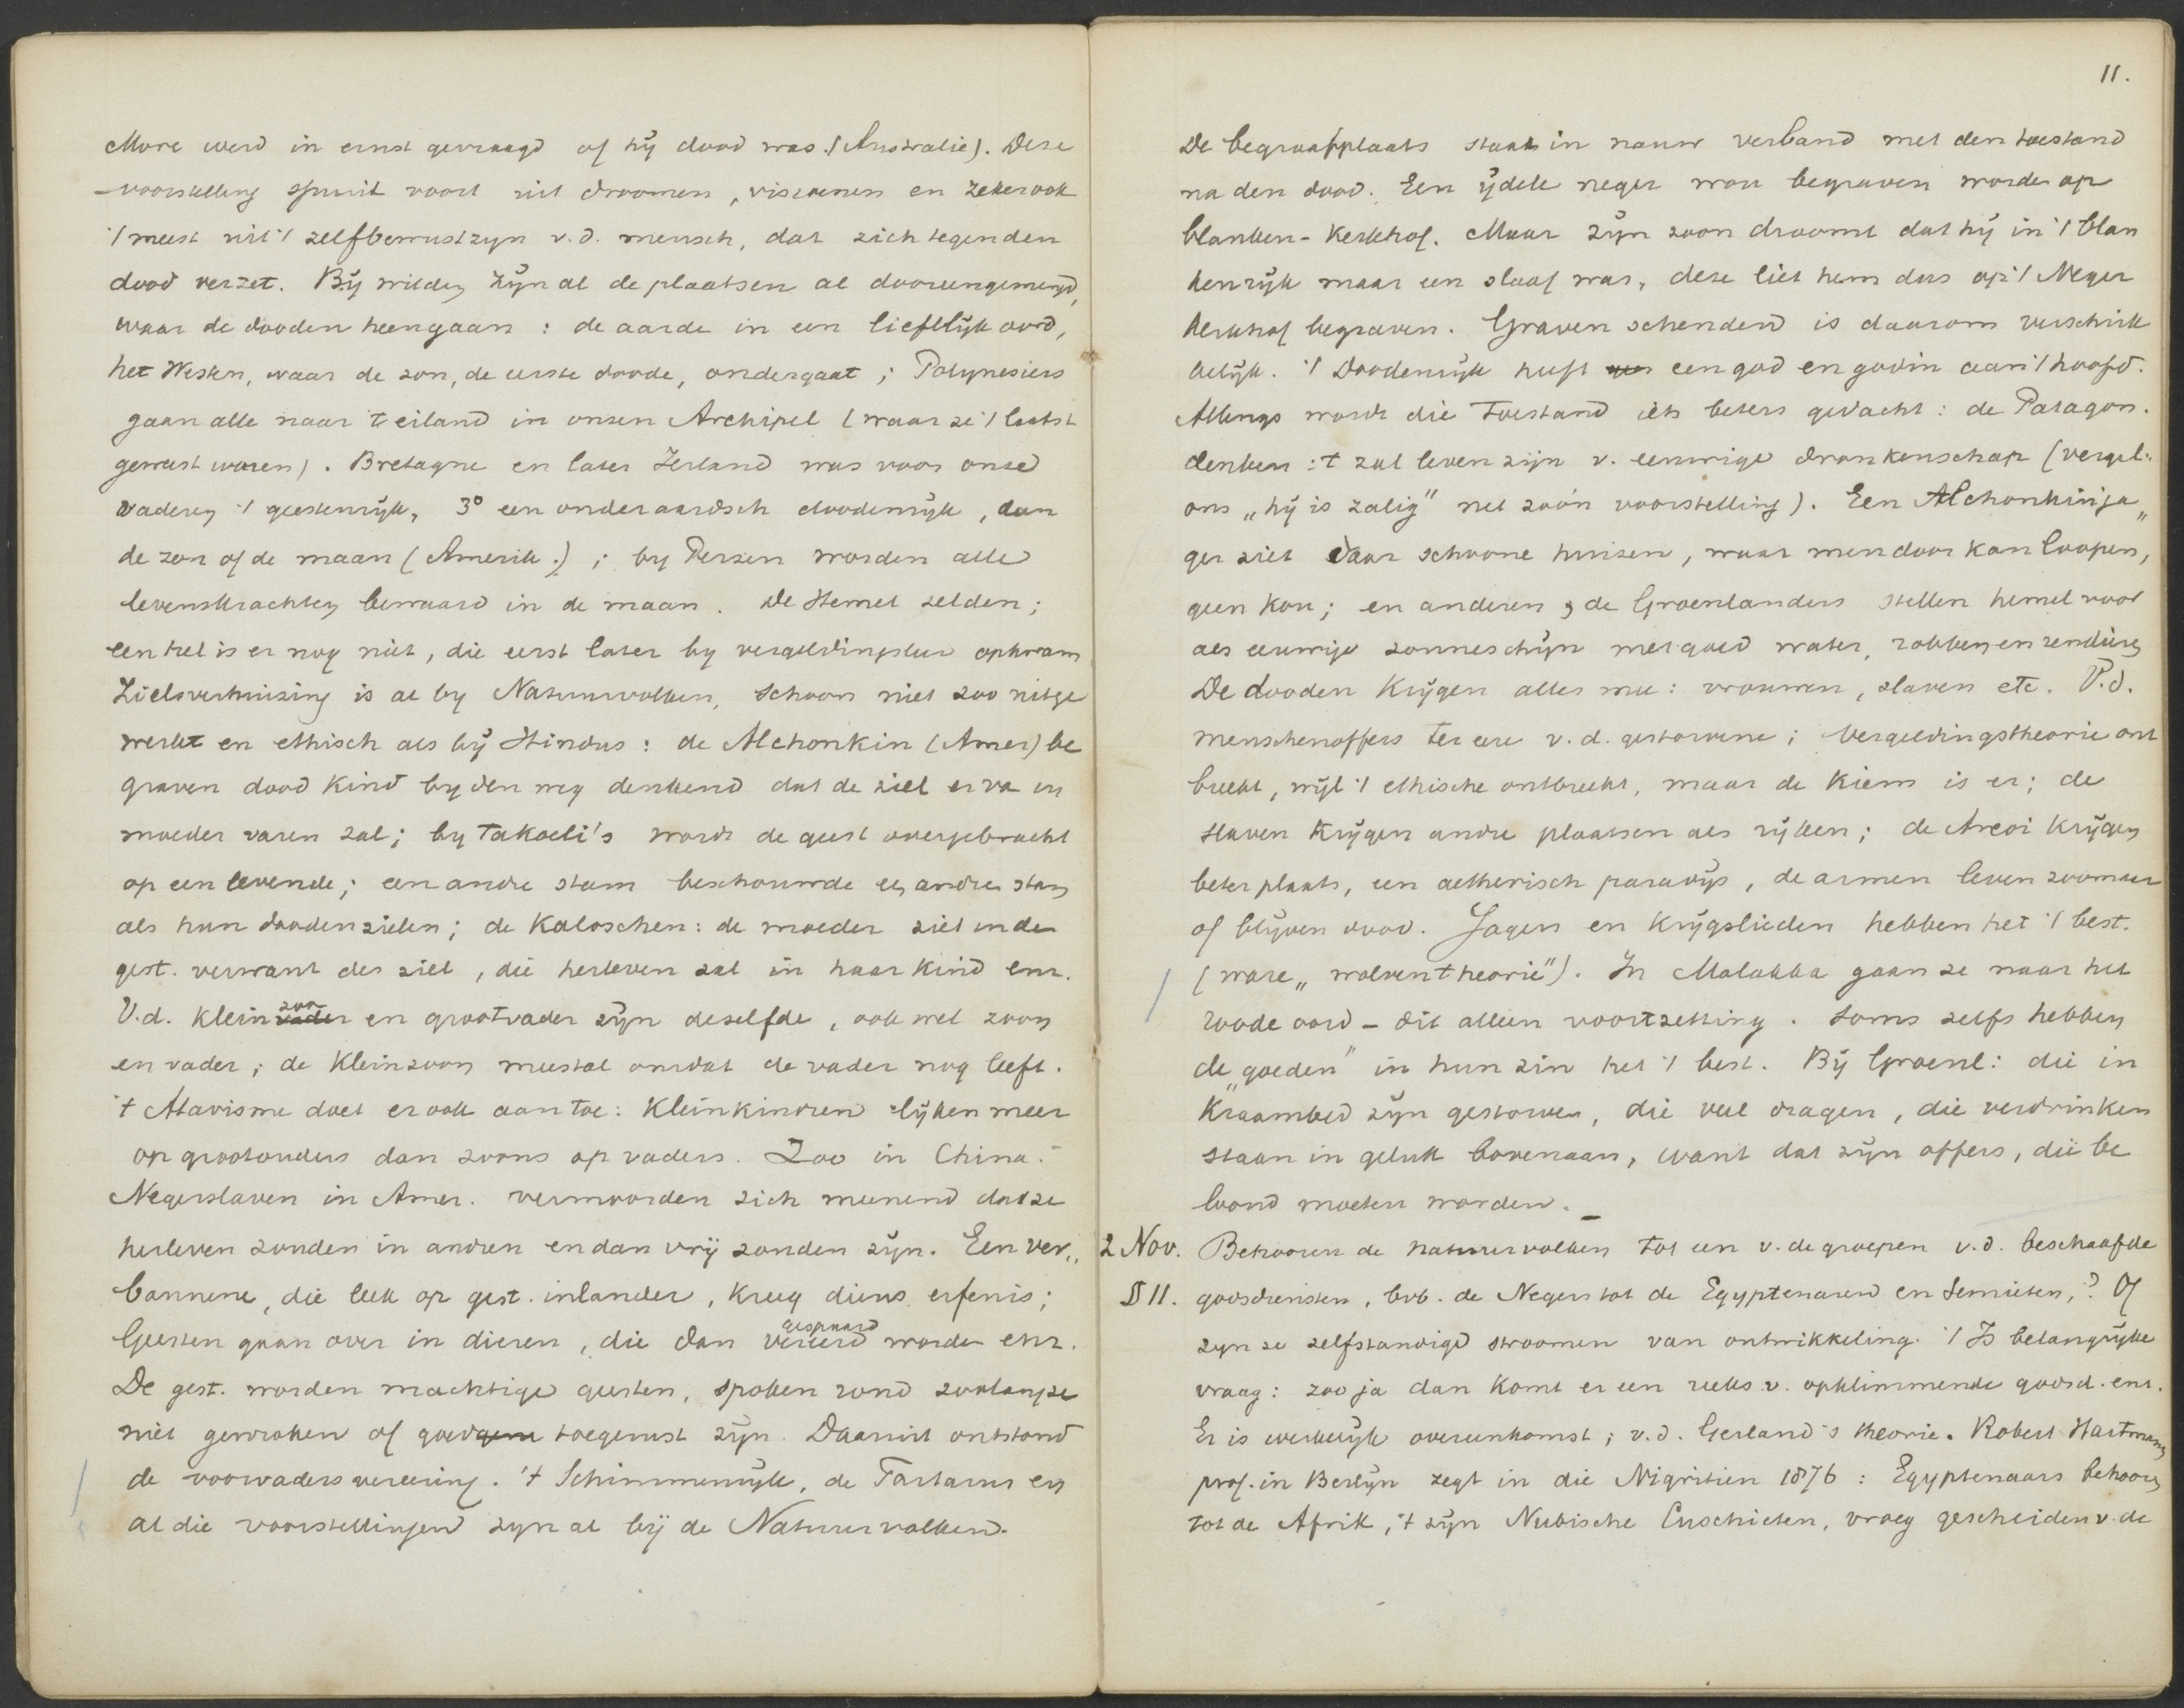 More werd in ernst gevraagd of hij dood was. (Australie). Deze
voorstelling spruit voort uit droomen, visioenen en zeker ook
't meest uit 't zelfbewustzyn v.d. mensch, dat zich tegen den
dood verzet. Bij wilden zijn al de plaatsen al dooreengemengd,
waar de dooden heengaan : de aarde in een lieflijk oord,
het Westen, waar de zon, de eerste doode, ondergaat ; Polynesiers
gaan alle naar 't eiland in onzen Archipel (waar ze 't laatst
geweest waren). Bretagne en later Ierland was voor onze
vaderen 't geestenrijk, 3° een onderaardsch doodenrijk, dan
de zon of de maan (Amerik.) ; by Perzen worden alle
levenskrachten bewaard in de maan. De Hemel zelden ;
een hel is er nog niet, die eerst later by vergeldingsleer opkwam
Zielsverhuizing is al by Natuurvolken, schoon niet zoo uitge
werkt en ethisch als bij Hindus : de Alchonkin (Amer) be
graven dood kind by den weg denkend dat de ziel er va in
moeder varen zal ; by Takoeli's wordt de geest overgebracht
op een levende ; een andre stam beschouwde een andre stam
als hun doodenzielen ; de Koloschen : de moeder ziet in de
gest. verwant der ziel, die herleven zal in haar kind enz.
V.d. kleinzoon en grootvader zijn dezelfde, ook wel zoon
en vader ; de kleinzoon meestal omdat de vader nog leeft.
't Atavisme doet er ook aan toe : kleinkinderen lijken meer
op grootouders dan zoons op vaders. Zoo in China.
Negerslaven in Amer. vermoorden zich meenend dat ze
herleven zouden in andren en dan vrij zouden zijn. Een ver„
bannene, die leek op gest. inlander, kreeg diens erfenis ;
Geesten gaan over in dieren, die dan vereerd gespaard worden enz.
De gest. worden machtige geesten, spoken rond zoolang ze
niet gewroken of goed toegerust zijn. Daaruit ontstond
de voorvadersvereering. 't Schimmenrijk, de Tartarus en
al die voorstellingen zyn al bij de Natuurvolken.
11.
De begraafplaats staat in nauw verband met den toestand
na den dood. Een ijdele neger wou begraven worden op
blanken-kerkhof. Maar zijn zoon droomt dat hij in 't blan
kenrijk maar een slaaf was, deze liet hem dus op 't Neger
kerkhof begraven. Graven schenden is daarom verschrik
kelijk. 't Doodenrijk heeft een god en godin aan 't hoofd.
Allengs wordt die toestand iets beters gedacht : de Patagon.
denken : 't zal leven zijn v. eeuwige dronkenschap (vergel.
ons „hij is zalig" net zoo'n voorstelling). Een Alchonkinja„
ger ziet daar schoone huizen, waar men door kan loopen,
geen kou ; en anderen, de Groenlanders stellen hemel voor
als eeuwige zonneschijn met goed water, robben en rendieren
De dooden krijgen alles mee : vrouwen, slaven etc. V.d.
menschenoffers ter eere v.d. gestorvene ; Vergeldingstheorie ont
breekt, wijl 't ethische ontbreekt, maar de kiem is er ; de
slaven krijgen andre plaatsen als rijken ; de Areoi krijgen
beter plaats, een aetherisch paradijs, de armen leven zoomaar
of blijven dood. Jagers en Krijgslieden hebben het 't best.
(ware „wolventheorie"). In Malakka gaan ze naar het
roode oord – dit alleen voortzetting. Soms zelfs hebben
de „goeden" in hun zin het 't best. Bij Groenl : die in
Kraambed zijn gestorven, die veel dragen, die verdrinken
staan in geluk bovenaan, want dat zijn offers, die be
loond moeten worden. –
2 Nov. Behooren de natuurvolken tot een v. de groepen v.d. beschaafde
§ 11. godsdiensten, bvb. de Negers tot de Egyptenaren en Semieten,? Of
zyn ze zelfstandige stroomen van ontwikkeling. 't Is belangrijke
vraag : zoo ja dan komt er een reeks v. opklimmende godsd. enz.
Er is werkelijk overeenkomst ; v.d. Gerland's theorie. Robert Hartmann
prof. in Berlijn zegt in die Nigritien 1876 : Egyptenaars behooren
tot de Afrik, 't zijn Nubische Cuschieten, vroeg gescheiden v. de